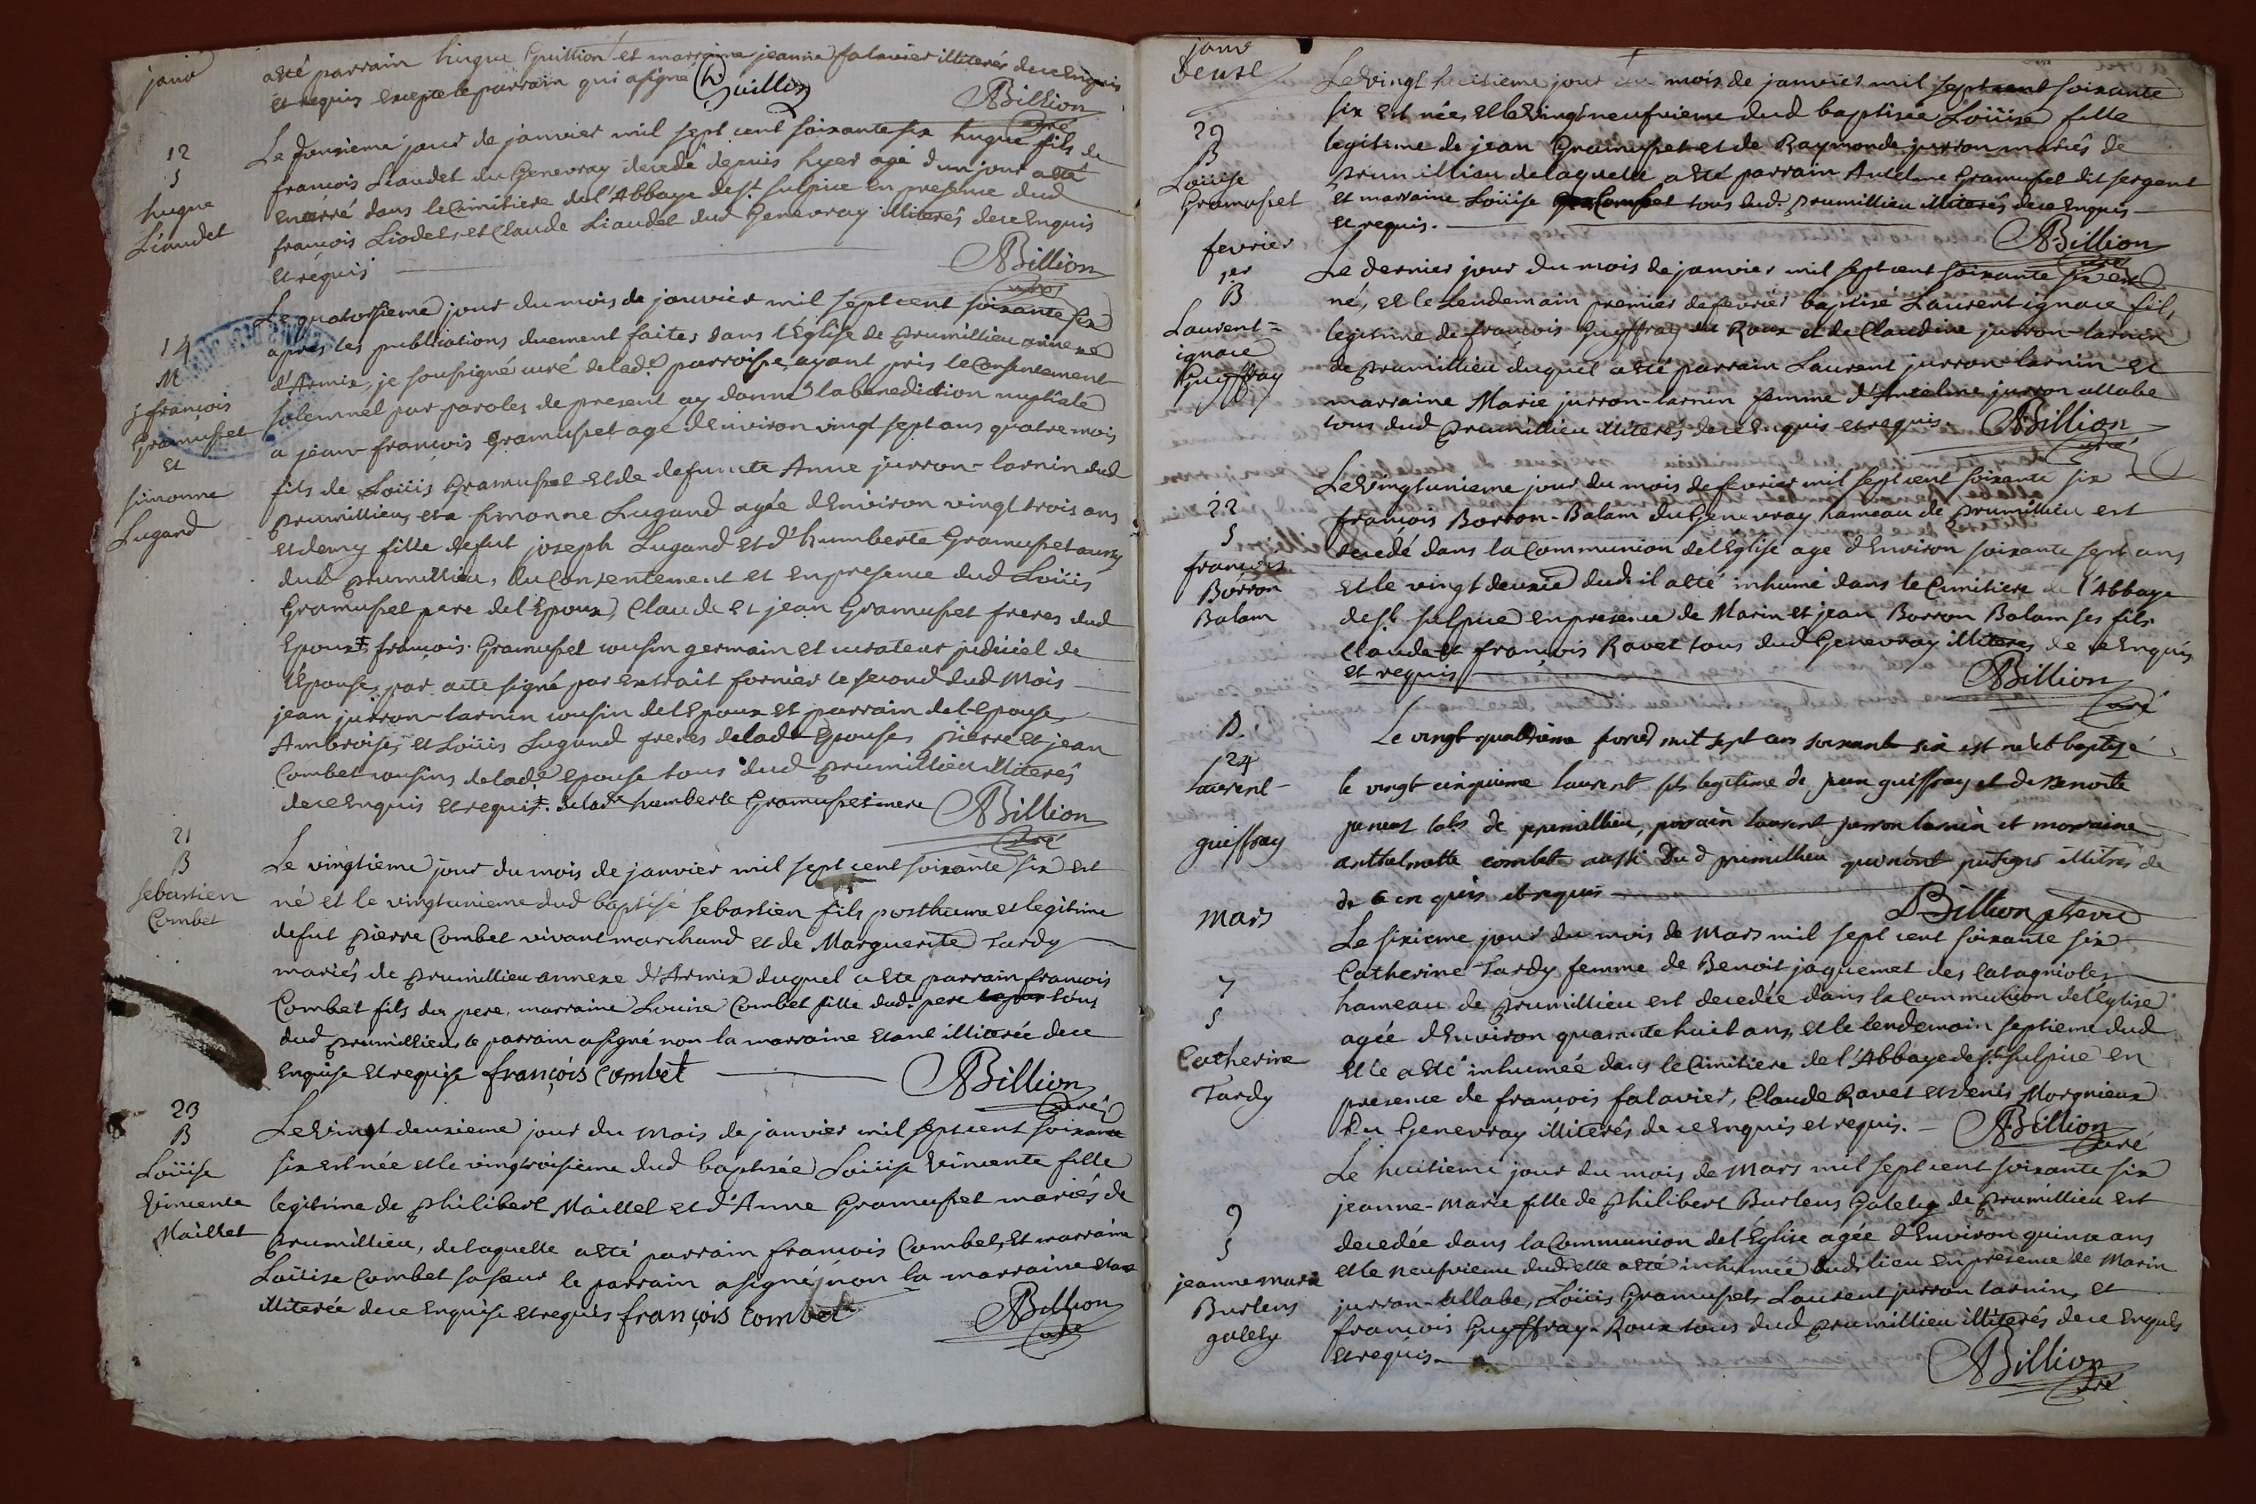 janv
a esté parrain hugue Guillion et marraine jeanne falavier illiterés de ce Enquis
et requis excepte le parrain qui a signé h Guillion
ABillion
curé
12
S
hugue
Liaudet
Le douzieme jour de janvier mil sept cent soixante six hugue fils de
francois Liaudet du Genevray decedé depuis hyer agé d'un jour a eté
enterré dans le Cimitiere de l'Abbaye de st sulpice en presence dud
francois Liodet et Claude Liaudet dud Genevray illiterés de ce Enquis
et requis
ABillion
curé
14
M
j francois
Gramusset
et
simonne
Lugand
Le quatorsieme jour du mois de janvier mil sept cent soixante six
apres les publications duement faites dans l'Eglise de prumillieu annexe
d'Armix, je soussigné curé de lad.e parroisse, ayant pris le Consentement
solemnel par paroles de present ay donné la benediction nuptiale
a jean-francois Gramusset agé d'Environ vingt sept ans quatre mois
fils de Loüis Gramusset et de defuncte Anne jurron-larnin dud
prumillieu, et a simonne Lugand agée d'Environ vingt trois ans
et demy fille de fut joseph Lugand et d'humberte Gramusset aussy
dud prumillieu, du Consentement et en presence dud Loüis
Gramusset pere de l'Epoux, Claude et jean Gramusset freres dud
Epoux ‡ francois Gramusset cousin germain et curateur judiciel de
l'Epouse, par acte signé par extrait fornier le second dud Mois
jean jurron-larnin cousin de l'Epoux et parrain de l'epouse
Ambroise, et Loüis Lugand freres de lad.e Epouse, pierre et jean
Combet cousins de lad.e epouse tous dud prumillieu illiterés
de ce Enquis et requis ‡. de lad.e humberte Gramusset mere
ABillion
curé
21
B
sebastien
Combet
Le vingtieme jour du mois de janvier mil sept cent soixante six est
né et le vingtunieme dud baptisé sebastien fils posthume et legitime
de fut pierre Combet vivant marchand et de Marguerite Tardy
mariés de prumillieu annexe d'Armix duquel a ete parrain francois
Combet fils du pere, marraine Louise Combet fille dud. pere tous
dud prumillieu, le parrain a signé non la marraine etant illiterée de ce
enquise et requise françois Combet
ABillion
curé
23
B
Loüise
Vincente
Maillet
Le vingt deuxieme jour du mois de janvier mil sept cent soixante
six est née et le vingtroisieme dud baptisée Loüise Vincente fille
legitime de philibert Maillet et d'Anne Gramusset mariés de
prumillieu, de laquelle a eté parrain francois Combet, et marraine
Loüise Combet sa sœur le parrain a signé non la marraine etant
illiterée de ce Enquise et requis françois Combet
ABillion
curé
janv
deuxe
29
B
Loüise
Gramusset
Le vingt huitieme jour du mois de janvier mil sept cent soixante
six est née, et le vingt neufvieme dud baptisée Loüise fille
legitime de jean Gramusset et de Raymonde jurron mariés de
prumillieu de laquelle a eté parrain Antelme Gramusset dit sergent
et marraine Loüise Combet tous dud. prumillieu illiterés de ce enquis
et requis.
ABillion
curé
fevrier
1er
B
Laurent=
ignace
Guyffray
Le dernier jour du mois de janvier mil sept cent soixante six est
né, et le lendemain premier de fevrier baptisé Laurent ignace fils
legitime de francois Guyffray Roux et de Claudine jurron-larnin
de prumillieu duquel a eté parrain Laurent jurron-larnin et
marraine Marie jurron-larnin femme d'Antelme jurron allabe
tous dud prumillieu illiterés de ce Enquis et requis.
ABillion
curé
22
S
francois
Borron
Balam
Le vingtunieme jour du mois de fevrier mil sept cent soixante six
francois Borron-Balam du Genevray hameau de prumillieu est
decedé dans la Communion de l'Eglise agé d'Environ soixante sept ans
et le vingt deuxie dud. il a eté inhumé dans le Cimitiere de l'Abbaye
de st. sulpice en presence de Marin et jean Borron Balam ses fils
Claude et francois Ravet tous dud Genevray illiteres de ce Enquis
et requis
ABillion
curé
B.
24
Laurent-
guiffray
Le vingt quatrième fevrier mil sept cen soixante six est né et baptizé
le vingt cinquième laurent fils legitime de jean guiffray et de Benoite
de prumillieu, parrain laurent jurron larnin et marraine
anthelmette combet aussi dud prumillieu qui n'ont pu signé illitrés de
de ce en quis et requis
Billion
mars
7
S
Catherine
Tardy
Le sixieme jour du mois de Mars mil sept cent soixante six
Catherine Tardy femme de Benoit jaquemet des Catagnioles
hameau de prumillieu est decedée dans la Communion de l'Eglise
agée d'Environ quarante huit ans, et le lendemain septieme dud
elle a eté inhumée dans le Cimitiere de l'Abbaye de st sulpice en
presence de francois falavier, Claude Ravet et denis Morgnieux
du Genevray illiterés de ce Enquis et requis.
ABillion
curé
9
S
jeanne marie
Burlens
galety
Le huitieme jour du mois de Mars mil sept cent soixante six
jeanne-Marie fille de philibert Burlens Galety de prumillieu est
decedée dans la Communion de l'Eglise agée d'Environ quinze ans
et le neufvieme dud. elle a eté inhumée dud. lieu en presence de Marin
jurron-allabe, Loüis Gramusset, Laurent jurron larnin, et
francois Guyffray-Roux tous dud prumillieu illiterés de ce Enquis
et requis.
ABillion
curé